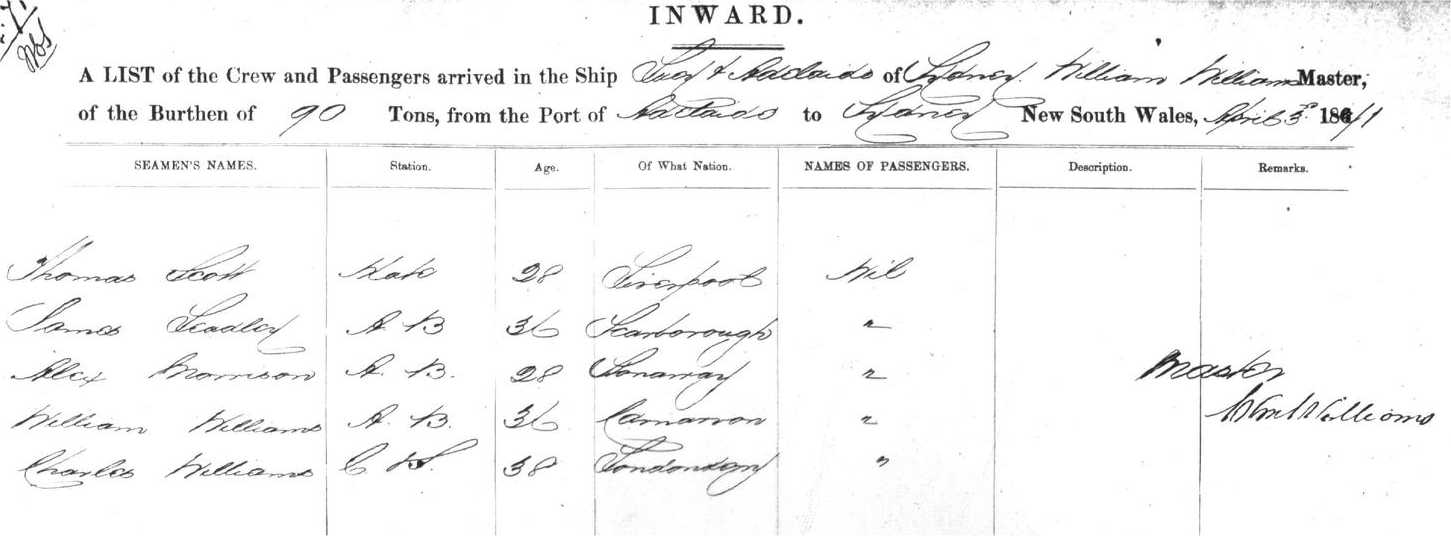 INWARD.
A LIST of the Crew and Passengers arrived in the Ship Lucy & Adelaide of Sydney William Williams Master,
of the Burthen of 90 Tons, from the Port of Adelaide to Sydney New South Wales, April 3rd 1871
SEAMEN'S NAMES. Station. Age. Of What Nation. NAMES OF PASSENGERS. Description. Remarks.
Thomas Scott Mate 28 Liverpool Nil
James A. B 36 Scarborough "
Alex Morrison A. B. 28 Stornaway "
Master
William Williams A. B. 36 Carnarvon "
Williams
Charles Williams C S. 38 Londonderry "